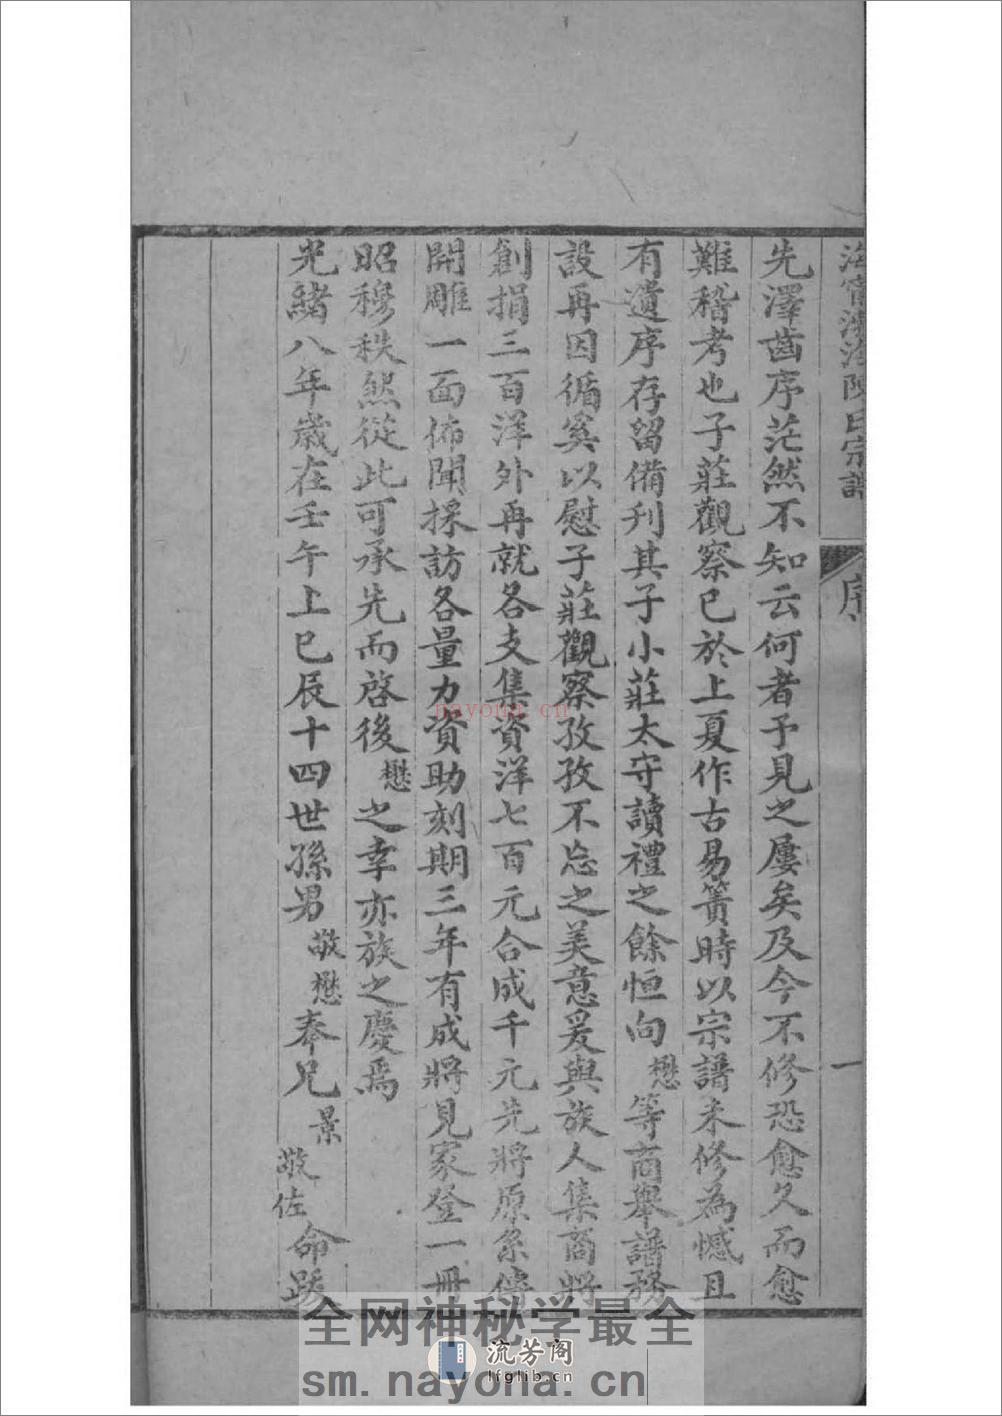 海寧渤海陳氏宗譜
序
一
先澤茵序茫然不知云何者予見之屢矣及今不修恐愈久而愈
難稽考也子莊觀察已於上夏作古易簀時以宗譜未修為憾且
有遺序存留備刋其子小莊太守讀禮之餘恒向懋等商舉譜務
設再因循奚以慰子莊觀察孜孜不忘之美意爰與族人集商將
創捐三百洋外再就各支集資洋七百元合成千元先將原系傳
開雕一面佈聞採訪各量力資助刻期三年有成將見家登一冊
昭穆秩然從此可承先而啓後懋之幸亦族之慶焉
光緒八年歲在壬午上巳辰十四世孫男敬懋奉兄景敬佐命跋
nayona.cn
全网神秘学最全
流芳阁
lfglib.cn
sm.nayona.cn